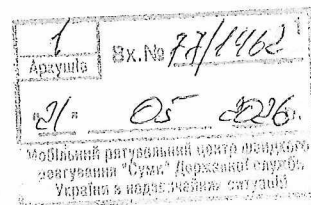 1
Аркушів
Вх.№ 77/1462
"21" 05 2026р.
мобільний рятувальний центр швидкого
реагування "Суми" Державної служби
України з надзвичайних ситуацій